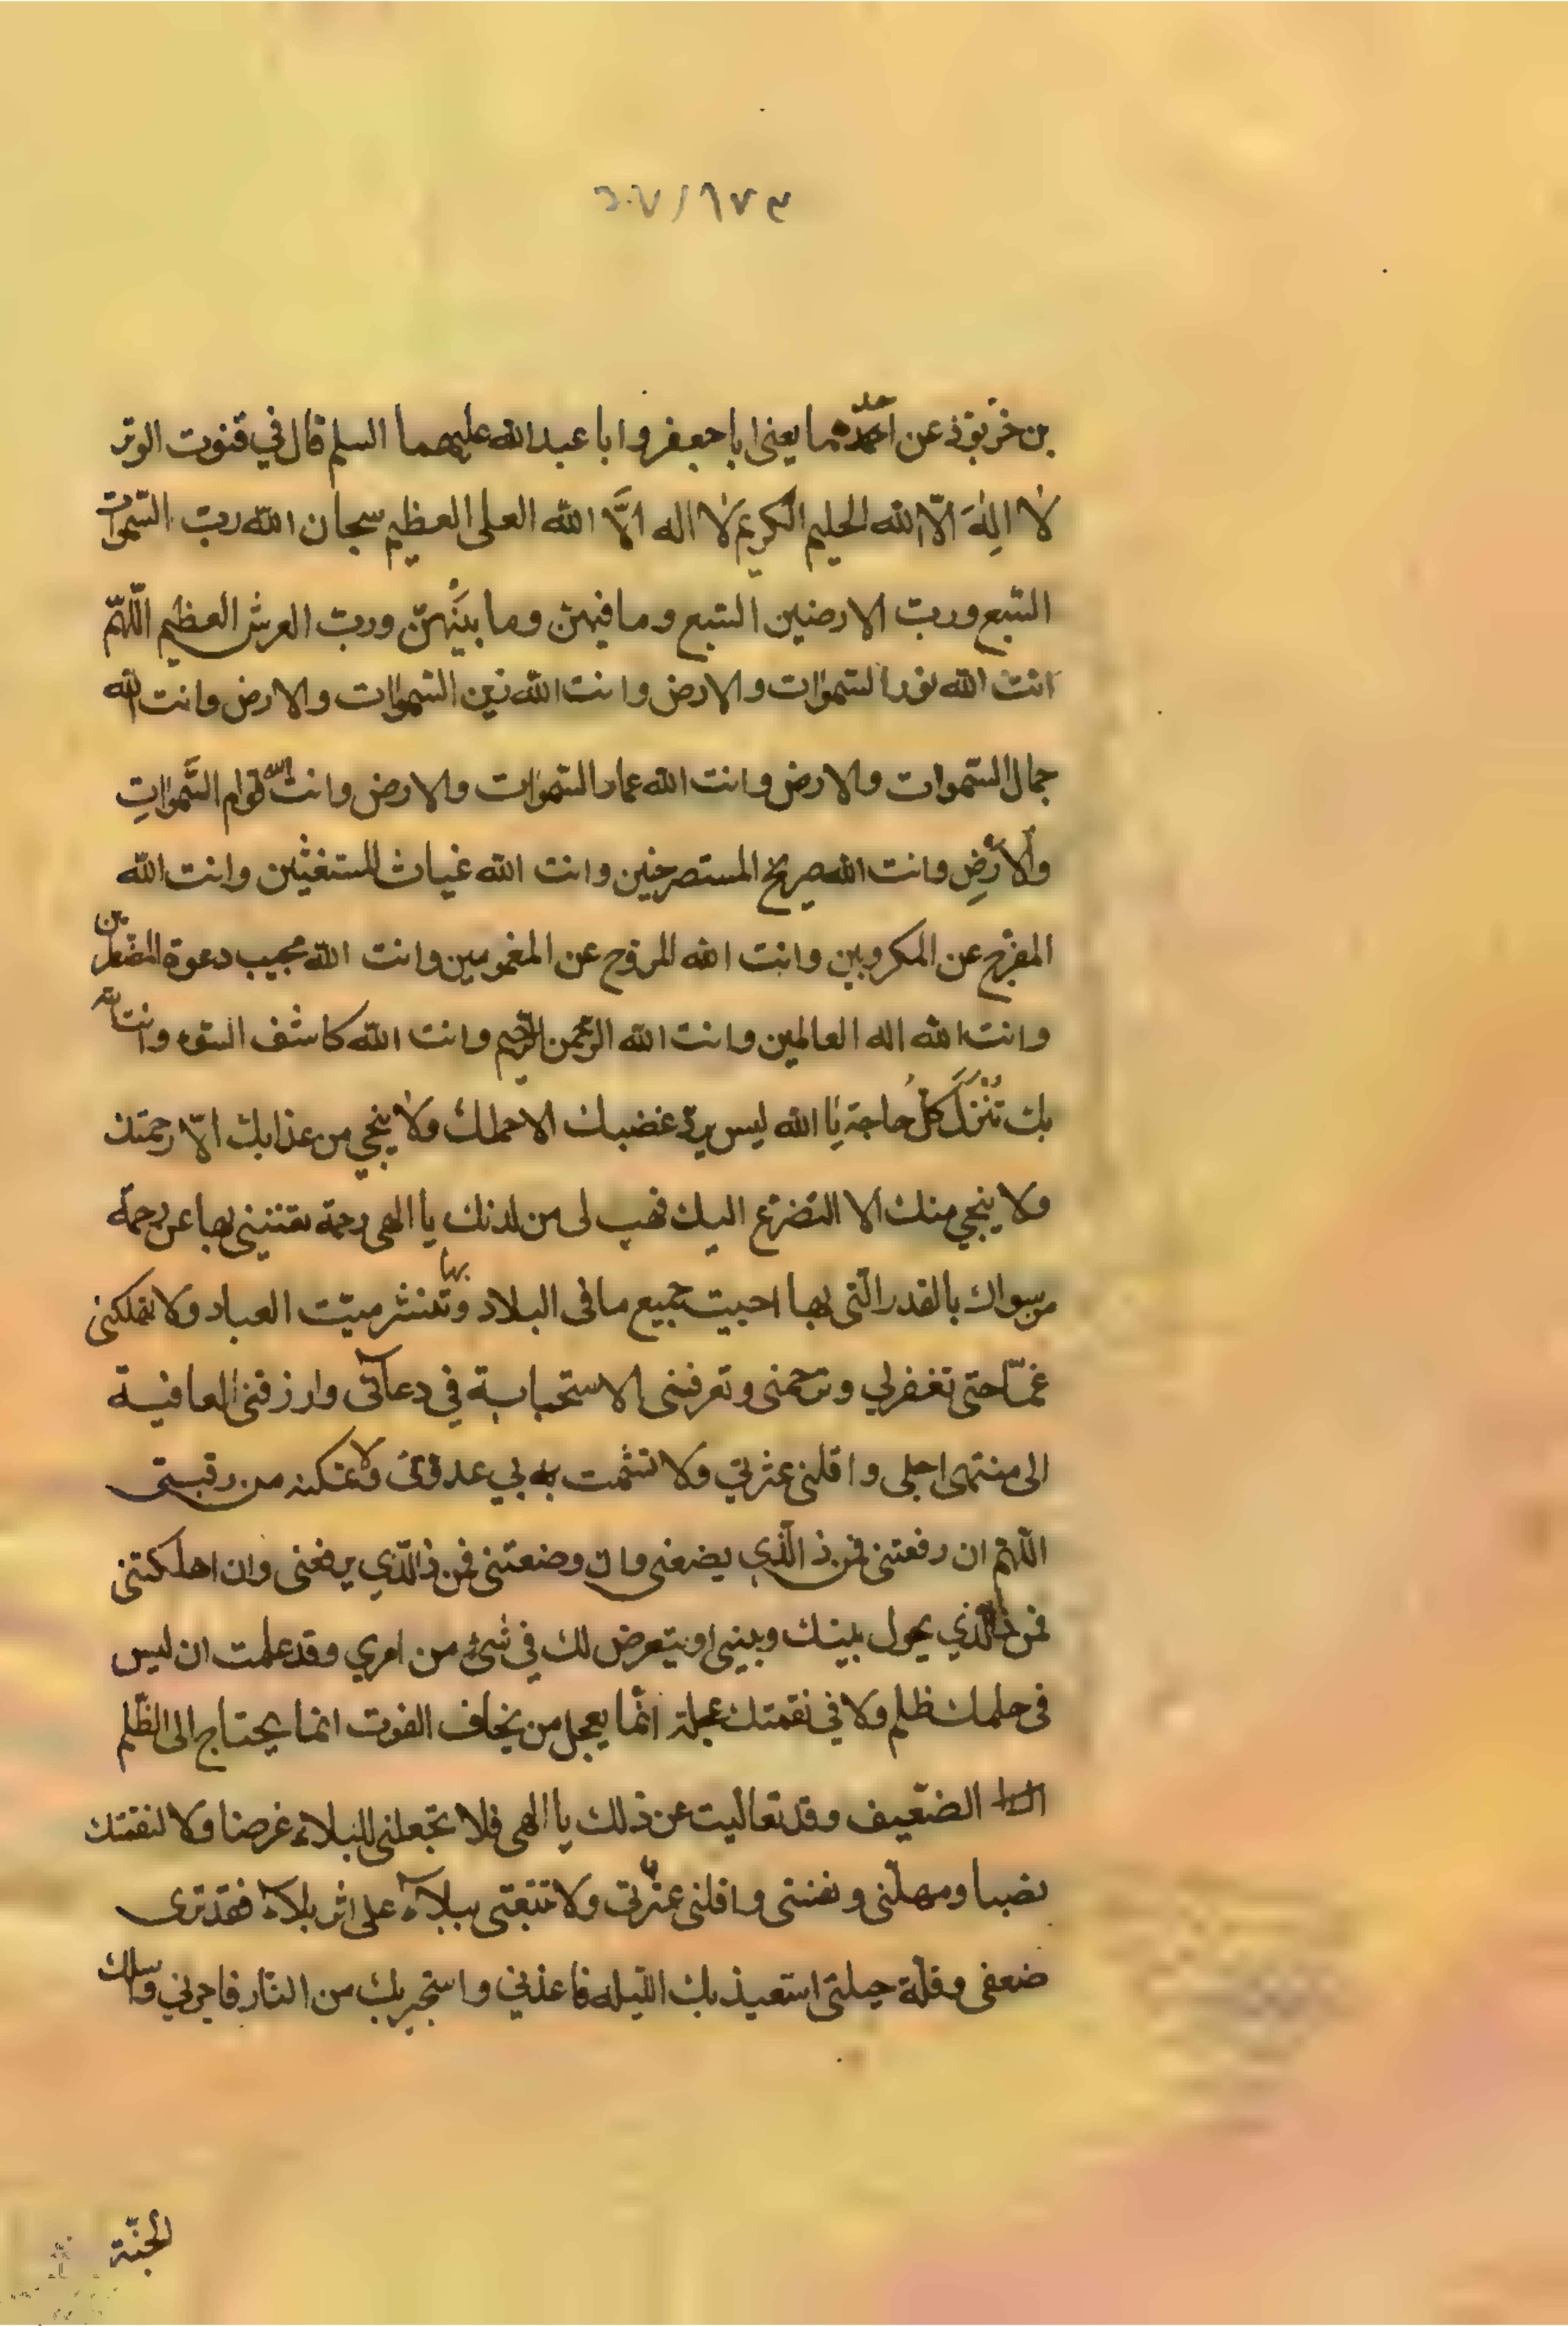 ٦٠٧/١٧٣
بن خرّبوذ عن احدهما يعنى ابا جعفر وابا عبدالله عليهما السلم قال في قنوت الوتر
لا اِلٰهَ الّا الله الحليم الكريم لا اله اِلَّا الله العلى العظيم سبحان الله ربّ السّموات
السّبع وربّ الارضين السّبع وما فيهنّ وما بَيْنَهنّ وربّ العرش العظيم اللّهمّ
انت الله نور السّموات والارض وانت الله زين السّموات والارض وانت الله
جمال السّموات والارض وانت الله عماد السّموات والارض وانت الله قوام السَّمواتِ
والاَرْضِ وانت الله صريخ المستصرخين وانت الله غياث المستغيثين وانت الله
المفرّج عن المكروبين وانت الله المروّح عن المغمومين وانت الله مجيب دعوة المضطرين
وانت الله اله العالمين وانت الله الرّحمن الرّحيم وانت الله كاشف السّوء وانت الله
بك تُنْزَلُ كلُّ حاجة يا الله ليس يردّ غضبك الا حملك ولا ينجي من عذابك الّا رحمتك
ولا ينجي منك الا التضرّع اليك فهب لى من لدنك يا الهى رحمة تغنينى بها عن رحمة
من سواك بالقدر الّتى بها احييت جميع ما فى البلاد وبها تنشر ميّت العباد ولا تهلكنى
غمّا حتى تغفرلي وترحمنى وتعرفنى الاستجابة في دعآئى وارزقنى العافية
الى منتهى اجلى واقلنى عثرتي ولا تشمت بي عدوّى ولا تمكنه من رقبتى
اللّهم ان رفعتنى فمن ذا الّذي يضعنى وان وضعتنى فمن ذا الّذي يرفعنى وان اهلكتنى
فمن ذا الّذي يحول بينك وبينى او يتعرض لك في شئ من امري وقد علمت ان ليس
فى حلمك ظلم ولا في نقمتك عجلة انّما يعجل من يخاف الفوت انما يحتاج الى الظّلم
الضّعيف وقد تعاليت عن ذلك يا الهى فلا تجعلنى للبلاء غرضا ولا لنقمتك
نصبا ومهلّنى ونفسنى واقلنى عثرتي ولا تتبعنى ببلآء على اثر بلآء فقد ترى
ضعفى وقلّة حيلتى استعيذ بك اللّيله فاعذني واستجير بك من النّار فاجرني واسالك
الجنّة